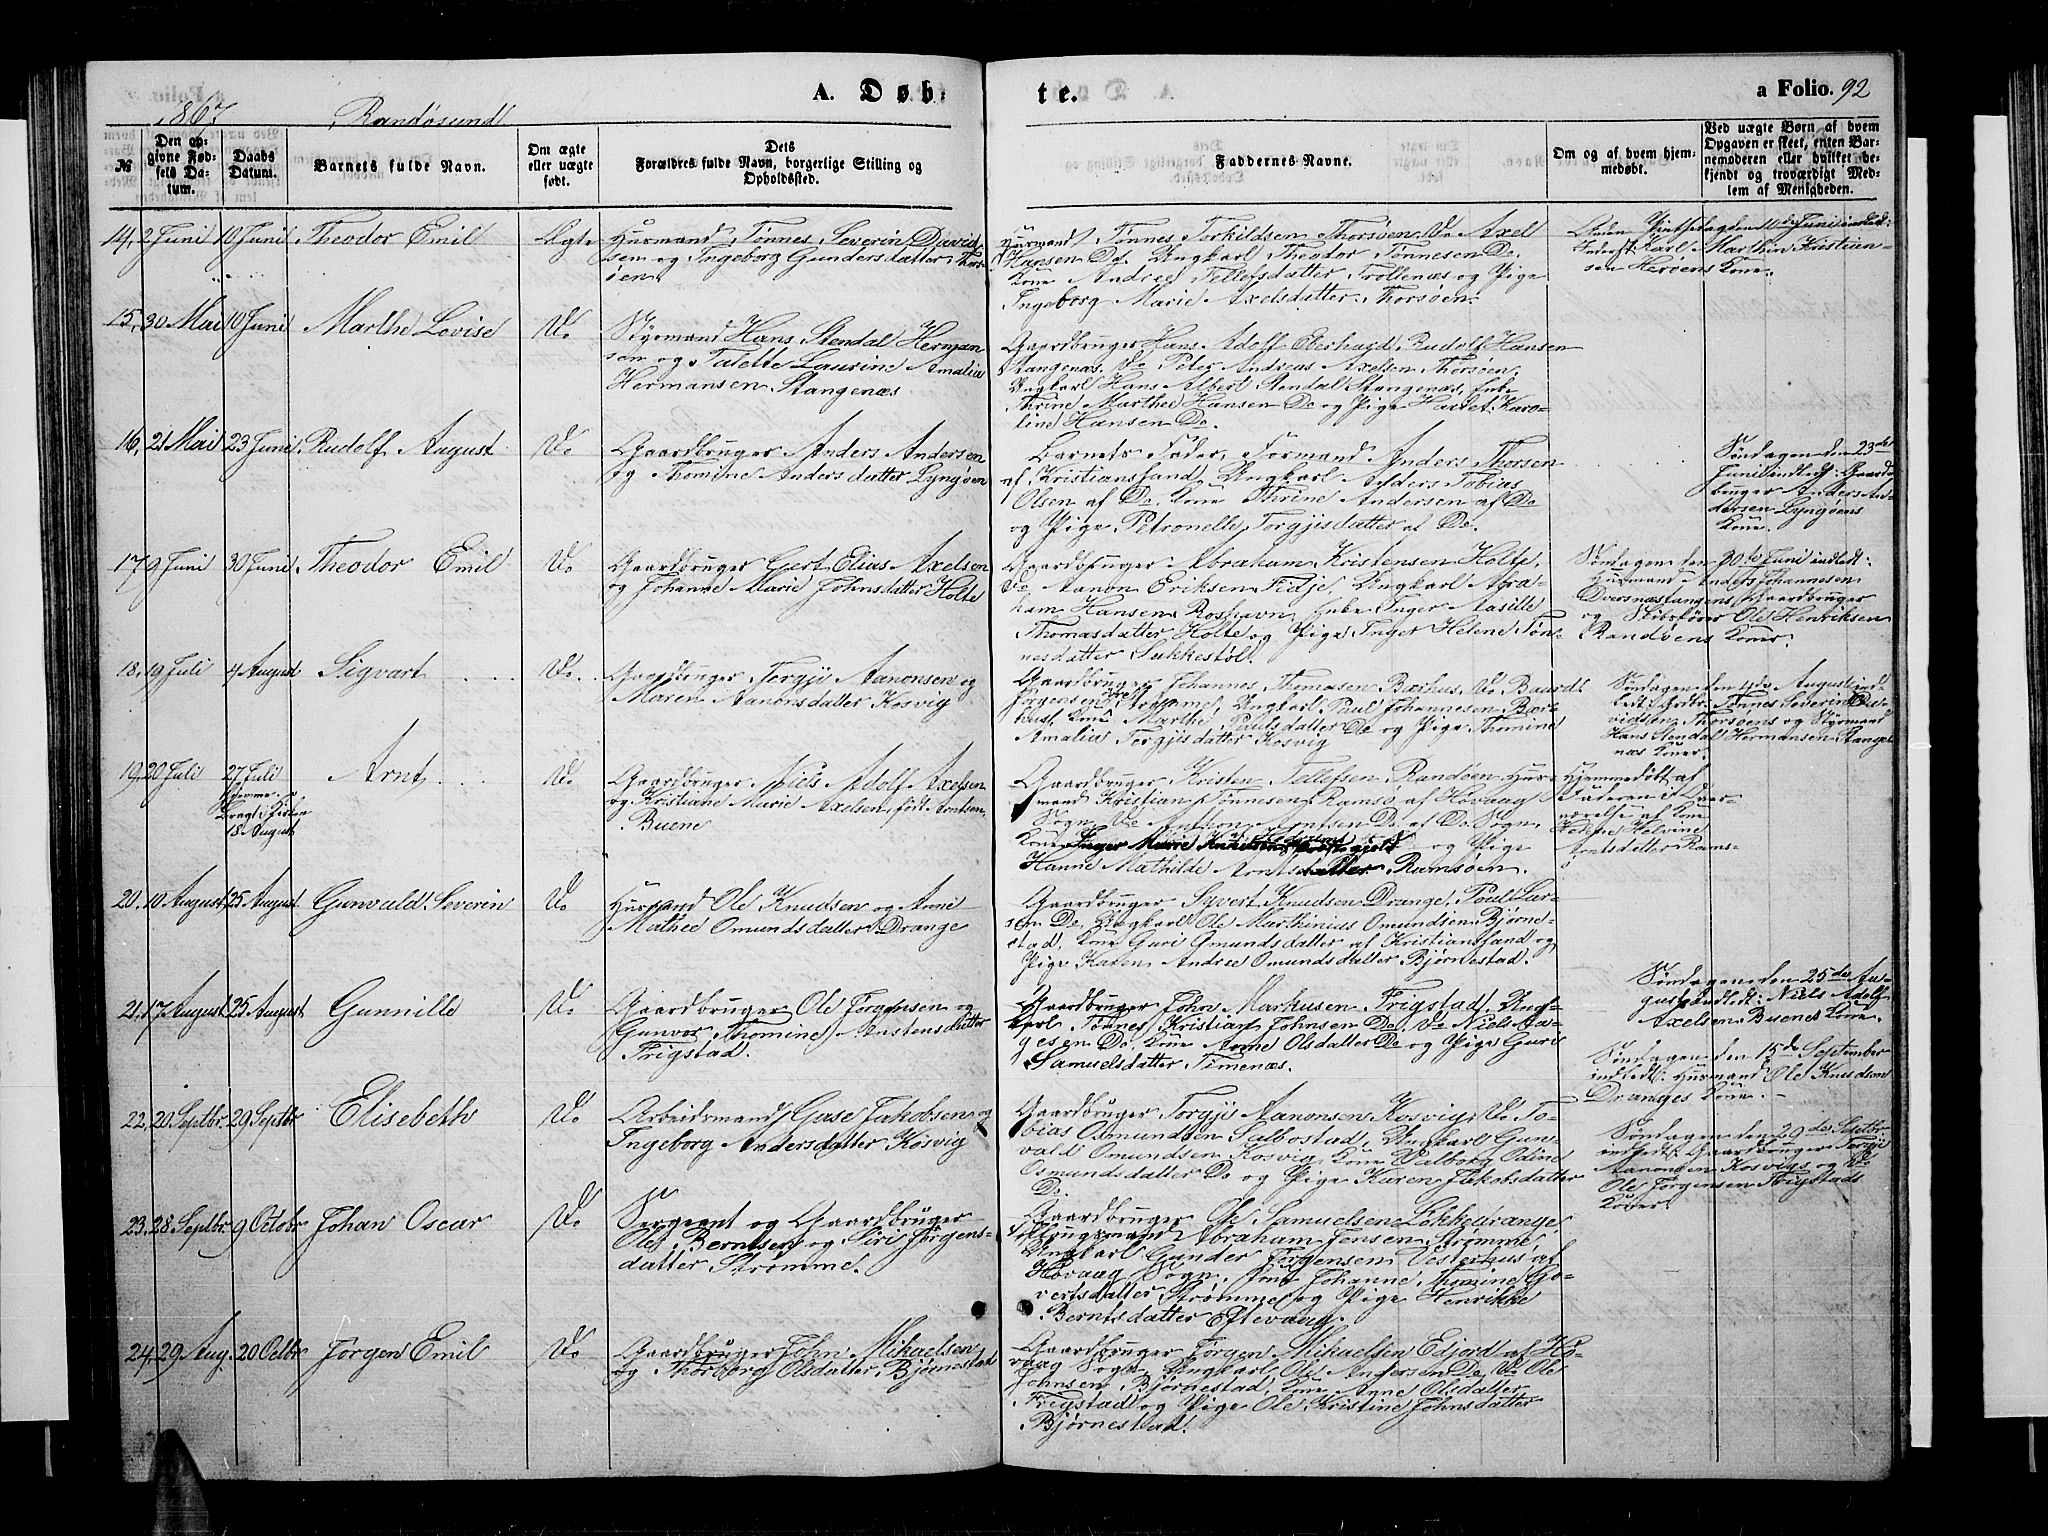 A. Døb-
te.
a Folio. 92
1867 Randøsund
№
Den op-
givne Fød-
sels Da-
tum.
Daabs
Datum.
Barnets fulde Navn.
Om ægte
eller uægte
født.
Dets
Forældres fulde Navn, borgerlige Stilling og
Opholdssted.
Faddernes Navne.
Om og af hvem hjem-
medøbt.
Ved uægte Børn af hvem
Opgaven er skeet, enten Bar-
nemoderen eller hvilket be-
kjendt og troværdigt Med-
lem af Menigheden.
14, 2 Juni 10 Juni Theodor Emil Ægte
Husmand Tønnes Severin David-
sen og Ingeborg Gundersdatter Thors-
øen.
Husmand Tønnes Torkildsen Thorsøen, Do Axel
Hansen Do. Ungkarl Theodor Tønnesen Do.
Kone Andrea Tellefsdatter Trollenæs og Pige
Ingeborg Marie Axelsdatter Thorsøen.
Anden Pintsedag den 10de Juni indledt:
Inderst Karl Marthin Kristen-
sen Herøens Kone.
15, 30 Mai 10 Juni Marthe Lovise Do
Styrmand Hans Stendal Herman-
sen og Talette Laurine Amalia
Hermansen, Stangenæs
Gaardbruger Hans Adolf Eberhard Rudolf Hansen
Stangenæs, Do Peter Andreas Axelsen Thorsøen,
Ungkarl Hans Albert Stendal Stangenæs, Enke
Thrine Marthea Hansen Do og Pige Karo-
line Hansen Do.
16, 21 Mai 23 Juni Rudolf August Do
Gaardbruger Anders Andersen
og Thomine Andersdatter Lyngøen
Barnets Fader, Formand Anders Thorsen
af Kristianssand, Ungkarl Anders Tobias
Olsen af Do, Kone Thrine Andersen af Do
og Pige Petronelle Torgjisdatter af Do.
Søndagen den 23de
Juni indledt: Gaard-
bruger Anders An-
dersen Lyngøens
Kone.
17, 9 Juni 30 Juni Theodor Emil Do
Gaardbruger Gert Elias Axelsen
og Johanne Marie Johnsdatter Holte
Gaardbruger Abraham Kristensen Holte,
Do Aanon Eriksen Fidje, Ungkarl Abra-
ham Hansen Roshavn, Enke Inger Aasille
Thomasdatter Holte og Pige Inger Helene Tøn-
nesdatter Sukkestøl.
Søndagen den 30te Juni indledt:
Husmand Anders Johannesen
Dversnæstangens, Gaardbruger
og Skibsfører Ole Henriksen
Randøens Koner.
18, 19 Juli 4 August Sigvart Do
Gaardbruger Torgji Aanonsen og
Maren Aanonsdatter Kosvig
Gaardbruger Johannes Thomasen Bærhus, Do Baardt
Jørgensen Strømme, Ungkarl Paul Johannesen Bær-
hus, Kone Marthe Paulsdatter Do og Pige Thomine
Amalia Torgjisdatter Kosvig
Søndagen den 4de August ind-
ledt: Tønnes Severin Da-
vidsen Thorsøens og Styrmand
Hans Stendal Hermansen Stange-
næs Koner.
19, 20 Juli 27 Juli
Hjemme.
Bragt i Kirken
18 August
Arnt Do
Gaardbruger Niels Adolf Axelsen
og Kristiane Marie Axelsen, født Arntsen
Buene
Gaardbruger Kristen Tellefsen Randøen, Hus-
mand Kristian Tønnesen Ramsø af Høvaag
Sogn, Do Anton Arntsen Do af Do Sogn,
Kone Inger Marie og Pige
Hanne Mathilde Arntsdatter Ramsøen.
Hjemmedøbt af
Faderen i Over-
værelse af Kone
Helene Helvine
Arntsdatter Rams-
ø
20, 10 August 25 August Gunvald Severin Do
Husmand Ole Knudsen og Anne
Mathea Omundsdatter Drange
Gaardbruger Syvert Knudsen Drange, Poul Lar-
sen Do, Ungkarl Ole Marthinius Omundsen Bjørne-
stad, Kone Guri Omundsdatter af Kristianssand og
Pige Karen Andrea Omundsdatter Bjørnestad.
21, 17 August 25 August Gunnille Do
Gaardbruger Ole Jørgensen og
Gunvor Thomine Austensdatter
Frigstad.
Gaardbruger John Markusen Frigstad, Ung-
karl Tønnes Kristian Johnsen Do, Do Niels Aa-
gesen Do, Kone Anne Olsdatter Do og Pige Guri
Samuelsdatter Timenæs.
Søndagen den 25de Au-
gust indledt: Niels Adolf
Axelsen Buenes Kone.
Søndagen den 15de September
indledt: Husmand Ole Knudsen
Dranges Kone.
22, 20 Septbr 29 Septbr Elisebeth Do
Arbeidsmand Gase Jakobsen og
Ingeborg Andersdatter Kosvig
Gaardbruger Torgji Aanonsen Kosvig, Do To-
bias Osmundsen Salbostad, Ungkarl Gun-
vald Omundsen Kosvig, Kone Valborg Odine
Osmundsdatter Do og Pige Karen Jakobsdatter
Do.
Søndagen den 29de Septbr
indledt Gaardbruger Torgji
Aanonsen Kosvigs og Do
Ole Jørgensen Frigstads
Koner.
23, 28 Septbr 9 Octobr Johan Oscar Do
Sergeant og Gaardbruger
Ole Berntsen og Siri Jørgens-
datter Strømme.
Gaardbruger Ole Samuelsen Løkkedrange,
Abraham Jensen Strømme
Ungkarl Gunder Jørgensen Vesterhus af
Høvaag Sogn, Johanne Thomine Go-
vertsdatter Strømme og Pige Henrikke
Berntsdatter Eftevaag.
24, 29 Aug. 20 Octbr Jørgen Emil Do
Gaardbruger John Mikaelsen
og Thorborg Olsdatter, Bjørnestad
Gaardbruger Jørgen Mikaelsen Edjord af Hø-
vaag Sogn, Ungkarl Ole Andersen Do, Do Ole
Johnsen Bjørnestad, Kone Anne Olsdatter
Frigstad og Pige Ole Kristine Johnsdatter
Bjørnestad.